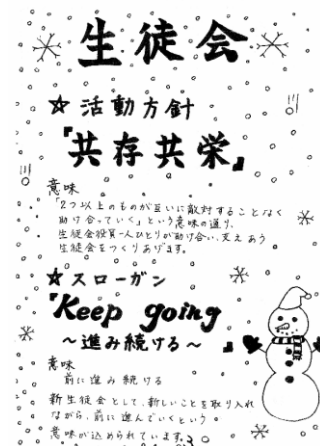 生徒会
☆活動方針
『共存共栄』
意味
「2つ以上のものが互いに敵対することなく
助け合っていく」という意味の通り、
生徒会役員一人ひとりが助け合い、支えあう
生徒会をつくりあげます。
☆スローガン
『Keep going
～進み続ける～』
意味
前に進み続ける
新生徒会として、新しいことを取り入れ
ながら、前に進んでいくという
意味が込められています。